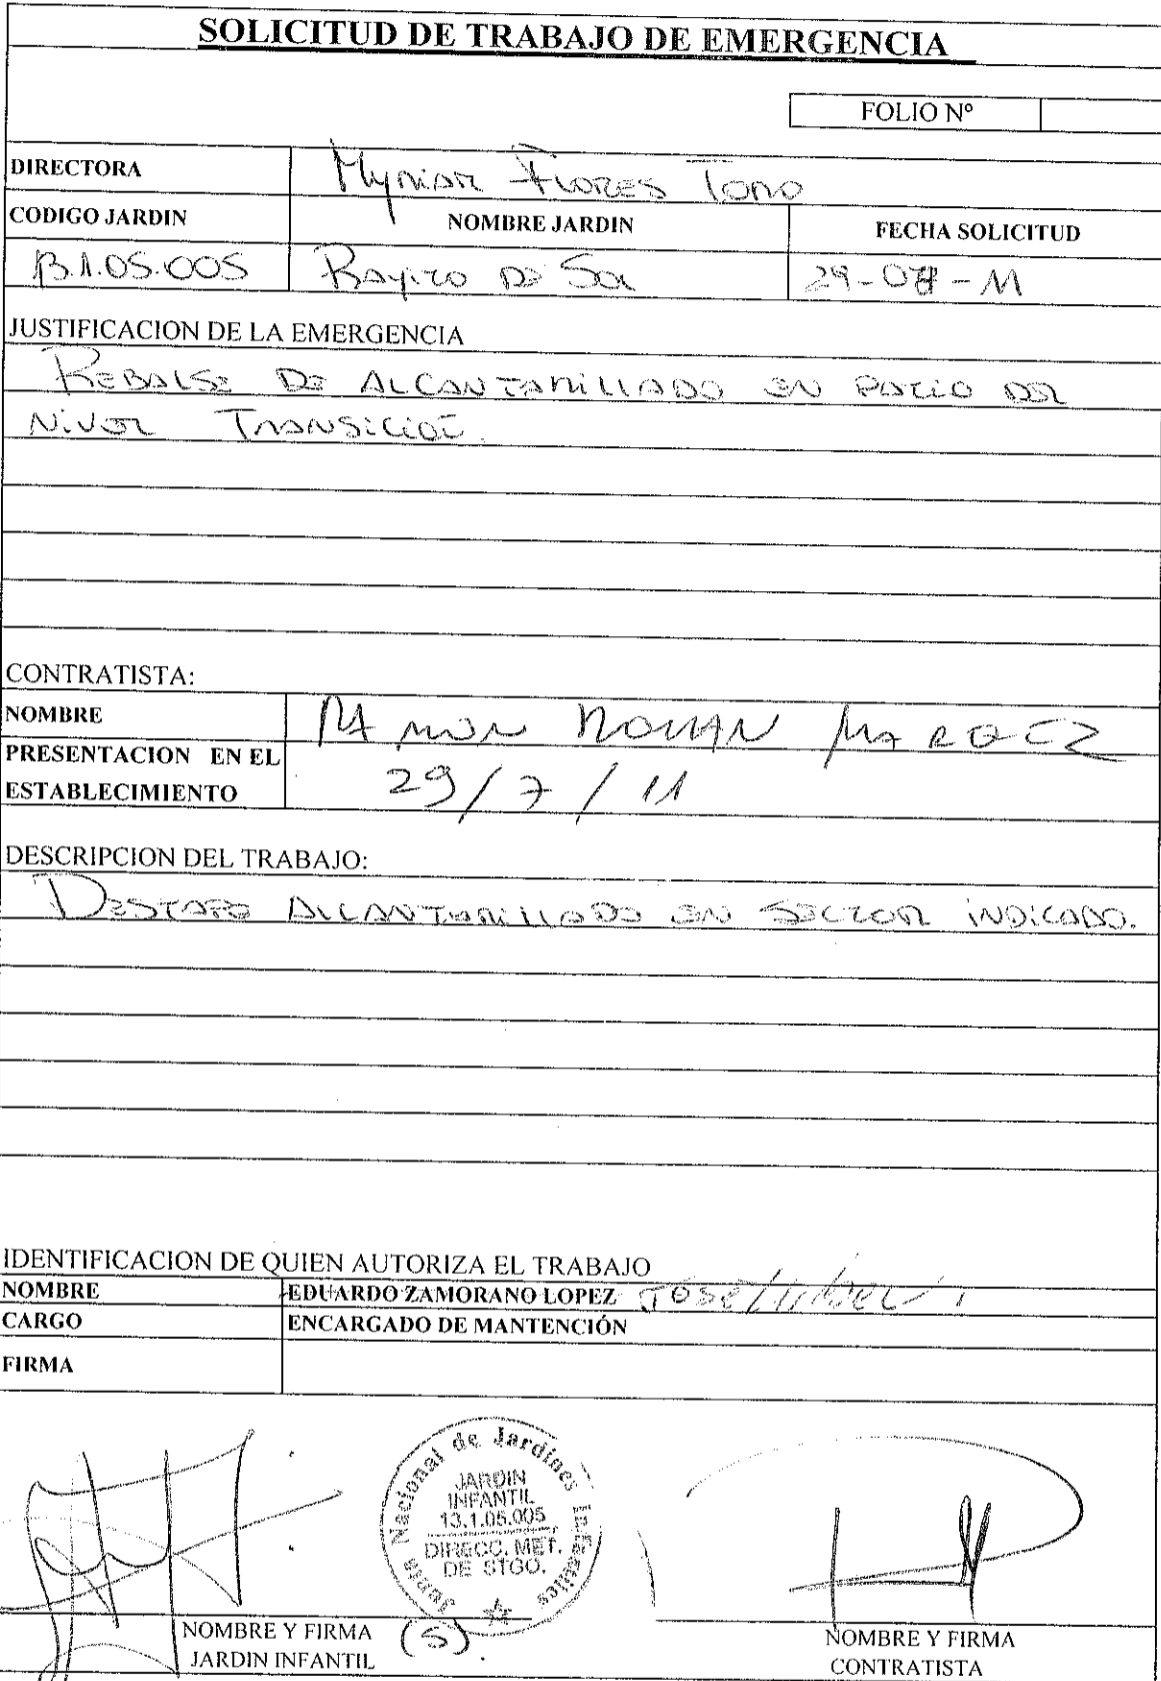 SOLICITUD DE TRABAJO DE EMERGENCIA
FOLIO Nº
DIRECTORA Myriam Flores Toro
CODIGO JARDIN NOMBRE JARDIN FECHA SOLICITUD
13.1.05.005 Rayito de Sol 29-07-11
JUSTIFICACION DE LA EMERGENCIA
REBALSE DE ALCANTARILLADO EN PATIO DEL
NIVEL TRANSICIÓN.
CONTRATISTA:
NOMBRE RAMON ROMAN
PRESENTACION EN EL
ESTABLECIMIENTO 29/7/11
DESCRIPCION DEL TRABAJO:
DESTAPE ALCANTARILLADO EN SECTOR INDICADO.
IDENTIFICACION DE QUIEN AUTORIZA EL TRABAJO
NOMBRE EDUARDO ZAMORANO LOPEZ JOSE
CARGO ENCARGADO DE MANTENCIÓN
FIRMA
Junta Nacional de Jardines Infantiles
JARDIN
INFANTIL
13.1.05.005
DIRECC. MET.
DE STGO.
NOMBRE Y FIRMA (S).
JARDIN INFANTIL
NOMBRE Y FIRMA
CONTRATISTA